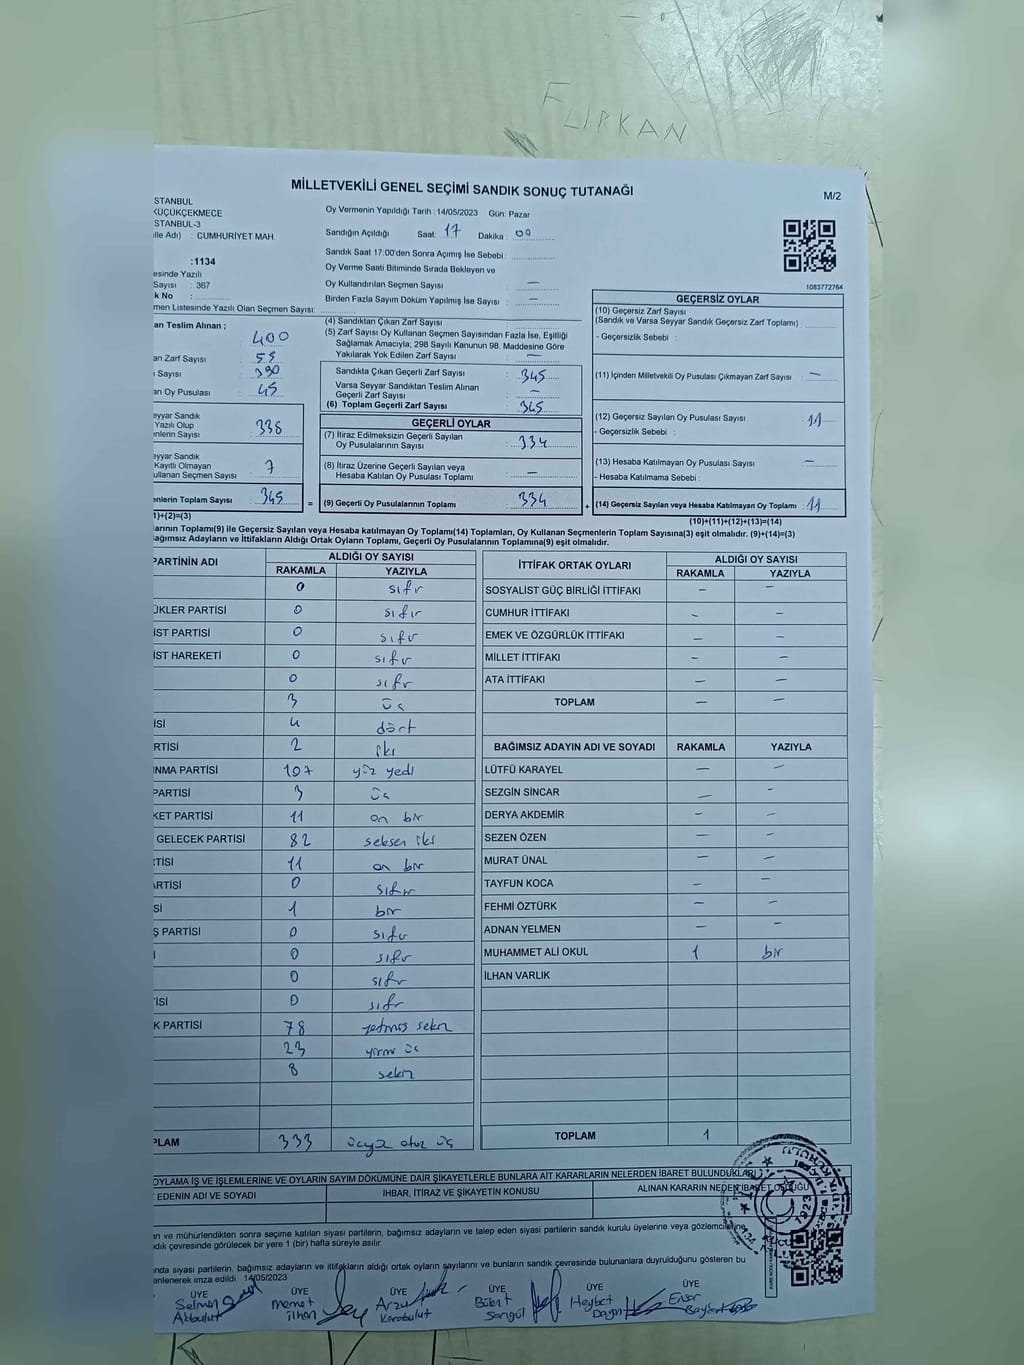 FURKAN
MİLLETVEKİLİ GENEL SEÇİMİ SANDIK SONUÇ TUTANAĞI
M/2
STANBUL
KÜÇÜKÇEKMECE
STANBUL-3
lle Adı) : CUMHURİYET MAH.
:1134
esinde Yazılı
Sayısı : 367
k No :
men Listesinde Yazılı Olan Seçmen Sayısı:
Oy Vermenin Yapıldığı Tarih : 14/05/2023 Gün: Pazar
Sandığın Açıldığı Saat: 17 Dakika : 00
Sandık Saat 17:00'den Sonra Açımış İse Sebebi :
Oy Verme Saati Bitiminde Sırada Bekleyen ve
Oy Kullandırılan Seçmen Sayısı : —
Birden Fazla Sayım Döküm Yapılmış İse Sayısı : —
1083772764
an Teslim Alınan ;
400
an Zarf Sayısı 55
ı Sayısı : 390
an Oy Pusulası : 45
(4) Sandıktan Çıkan Zarf Sayısı
(5) Zarf Sayısı Oy Kullanan Seçmen Sayısından Fazla İse, Eşitliği
Sağlamak Amacıyla; 298 Sayılı Kanunun 98. Maddesine Göre
Yakılarak Yok Edilen Zarf Sayısı : —
Sandıkta Çıkan Geçerli Zarf Sayısı : 345
Varsa Seyyar Sandıktan Teslim Alınan
Geçerli Zarf Sayısı : —
(6) Toplam Geçerli Zarf Sayısı : 345
GEÇERLİ OYLAR
(7) İtiraz Edilmeksizin Geçerli Sayılan
Oy Pusulalarının Sayısı : 334
(8) İtiraz Üzerine Geçerli Sayılan veya
Hesaba Katılan Oy Pusulası Toplamı : —
(9) Geçerli Oy Pusulalarının Toplamı : 334
eyyar Sandık
Yazılı Olup
enlerin Sayısı : 338
eyyar Sandık
Kayıtlı Olmayan
ullanan Seçmen Sayısı : 7
enlerin Toplam Sayısı : 345
1)+(2)=(3)
GEÇERSİZ OYLAR
(10) Geçersiz Zarf Sayısı
(Sandık ve Varsa Seyyar Sandık Geçersiz Zarf Toplamı) :
- Geçersizlik Sebebi :
(11) İçinden Milletvekili Oy Pusulası Çıkmayan Zarf Sayısı : —
(12) Geçersiz Sayılan Oy Pusulası Sayısı : 11
- Geçersizlik Sebebi :
(13) Hesaba Katılmayan Oy Pusulası Sayısı : —
- Hesaba Katılmama Sebebi :
(14) Geçersiz Sayılan veya Hesaba Katılmayan Oy Toplamı : 11
(10)+(11)+(12)+(13)=(14)
larının Toplamı(9) ile Geçersiz Sayılan veya Hesaba katılmayan Oy Toplamı(14) Toplamları, Oy Kullanan Seçmenlerin Toplam Sayısına(3) eşit olmalıdır. (9)+(14)=(3)
ağımsız Adayların ve İttifakların Aldığı Ortak Oyların Toplamı, Geçerli Oy Pusulalarının Toplamına(9) eşit olmalıdır.
PARTİNİN ADI ALDIĞI OY SAYISI
RAKAMLA YAZIYLA
0 sıfır
ÜKLER PARTİSİ 0 sıfır
İST PARTİSİ 0 sıfır
İST HAREKETİ 0 sıfır
0 sıfır
3 üç
İSİ 4 dört
RTİSİ 2 iki
NMA PARTİSİ 107 yüz yedi
PARTİSİ 3 üç
KET PARTİSİ 11 on bir
GELECEK PARTİSİ 82 seksen iki
TİSİ 11 on bir
ARTİSİ 0 sıfır
Sİ 1 bir
Ş PARTİSİ 0 sıfır
İ 0 sıfır
0 sıfır
İSİ 0 sıfır
K PARTİSİ 78 yetmiş sekiz
23 yirmi üç
8 sekiz
PLAM 333 üçyüz otuz üç
İTTİFAK ORTAK OYLARI ALDIĞI OY SAYISI
RAKAMLA YAZIYLA
SOSYALİST GÜÇ BİRLİĞİ İTTİFAKI — —
CUMHUR İTTİFAKI — —
EMEK VE ÖZGÜRLÜK İTTİFAKI — —
MİLLET İTTİFAKI — —
ATA İTTİFAKI — —
TOPLAM — —
BAĞIMSIZ ADAYIN ADI VE SOYADI RAKAMLA YAZIYLA
LÜTFÜ KARAYEL — —
SEZGİN SİNCAR — —
DERYA AKDEMİR — —
SEZEN ÖZEN — —
MURAT ÜNAL — —
TAYFUN KOCA — —
FEHMİ ÖZTÜRK — —
ADNAN YELMEN — —
MUHAMMET ALİ OKUL 1 bir
İLHAN VARLIK
TOPLAM 1
OYLAMA İŞ VE İŞLEMLERİNE VE OYLARIN SAYIM DÖKÜMÜNE DAİR ŞİKAYETLERLE BUNLARA AİT KARARLARIN NELERDEN İBARET BULUNDUKLARI
EDENİN ADI VE SOYADI İHBAR, İTİRAZ VE ŞİKAYETİN KONUSU ALINAN KARARIN NEDEN İBARET OLDUĞU
n ve mühürlendikten sonra seçime katılan siyasi partilerin, bağımsız adayların ve talep eden siyasi partilerin sandık kurulu üyelerine veya gözlemcilerine
dık çevresinde görülecek bir yere 1 (bir) hafta süreyle asılır.
nda siyasi partilerin, bağımsız adayların ve ittifakların aldığı ortak oyların sayılarını ve bunların sandık çevresinde bulunanlara duyrulduğunu gösteren bu
enlenerek imza edildi. 14/05/2023
ÜYE ÜYE ÜYE ÜYE ÜYE ÜYE
Selman Memet Arzu Bülent Heybet Enser
Akbulut ilhan Karabulut Sarıgül